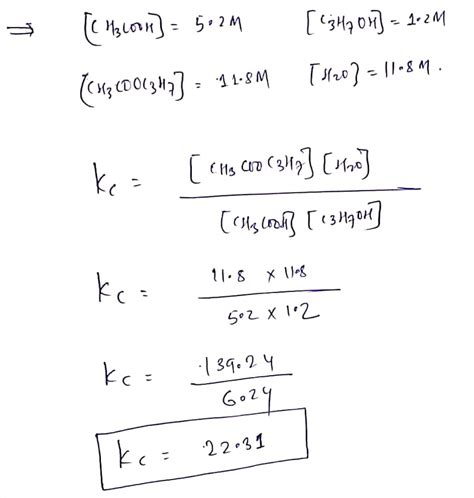 ⇒ [CH3COOH] = 5.2M [C3H7OH] = 1.2M
[CH3COOC3H7] = 11.8M [H2O] = 11.8M.
Kc = [CH3COOC3H7] [H2O]
[CH3COOH] [C3H7OH]
Kc = 11.8 × 11.8
5.2 × 1.2
Kc = 139.24
6.24
Kc = 22.31